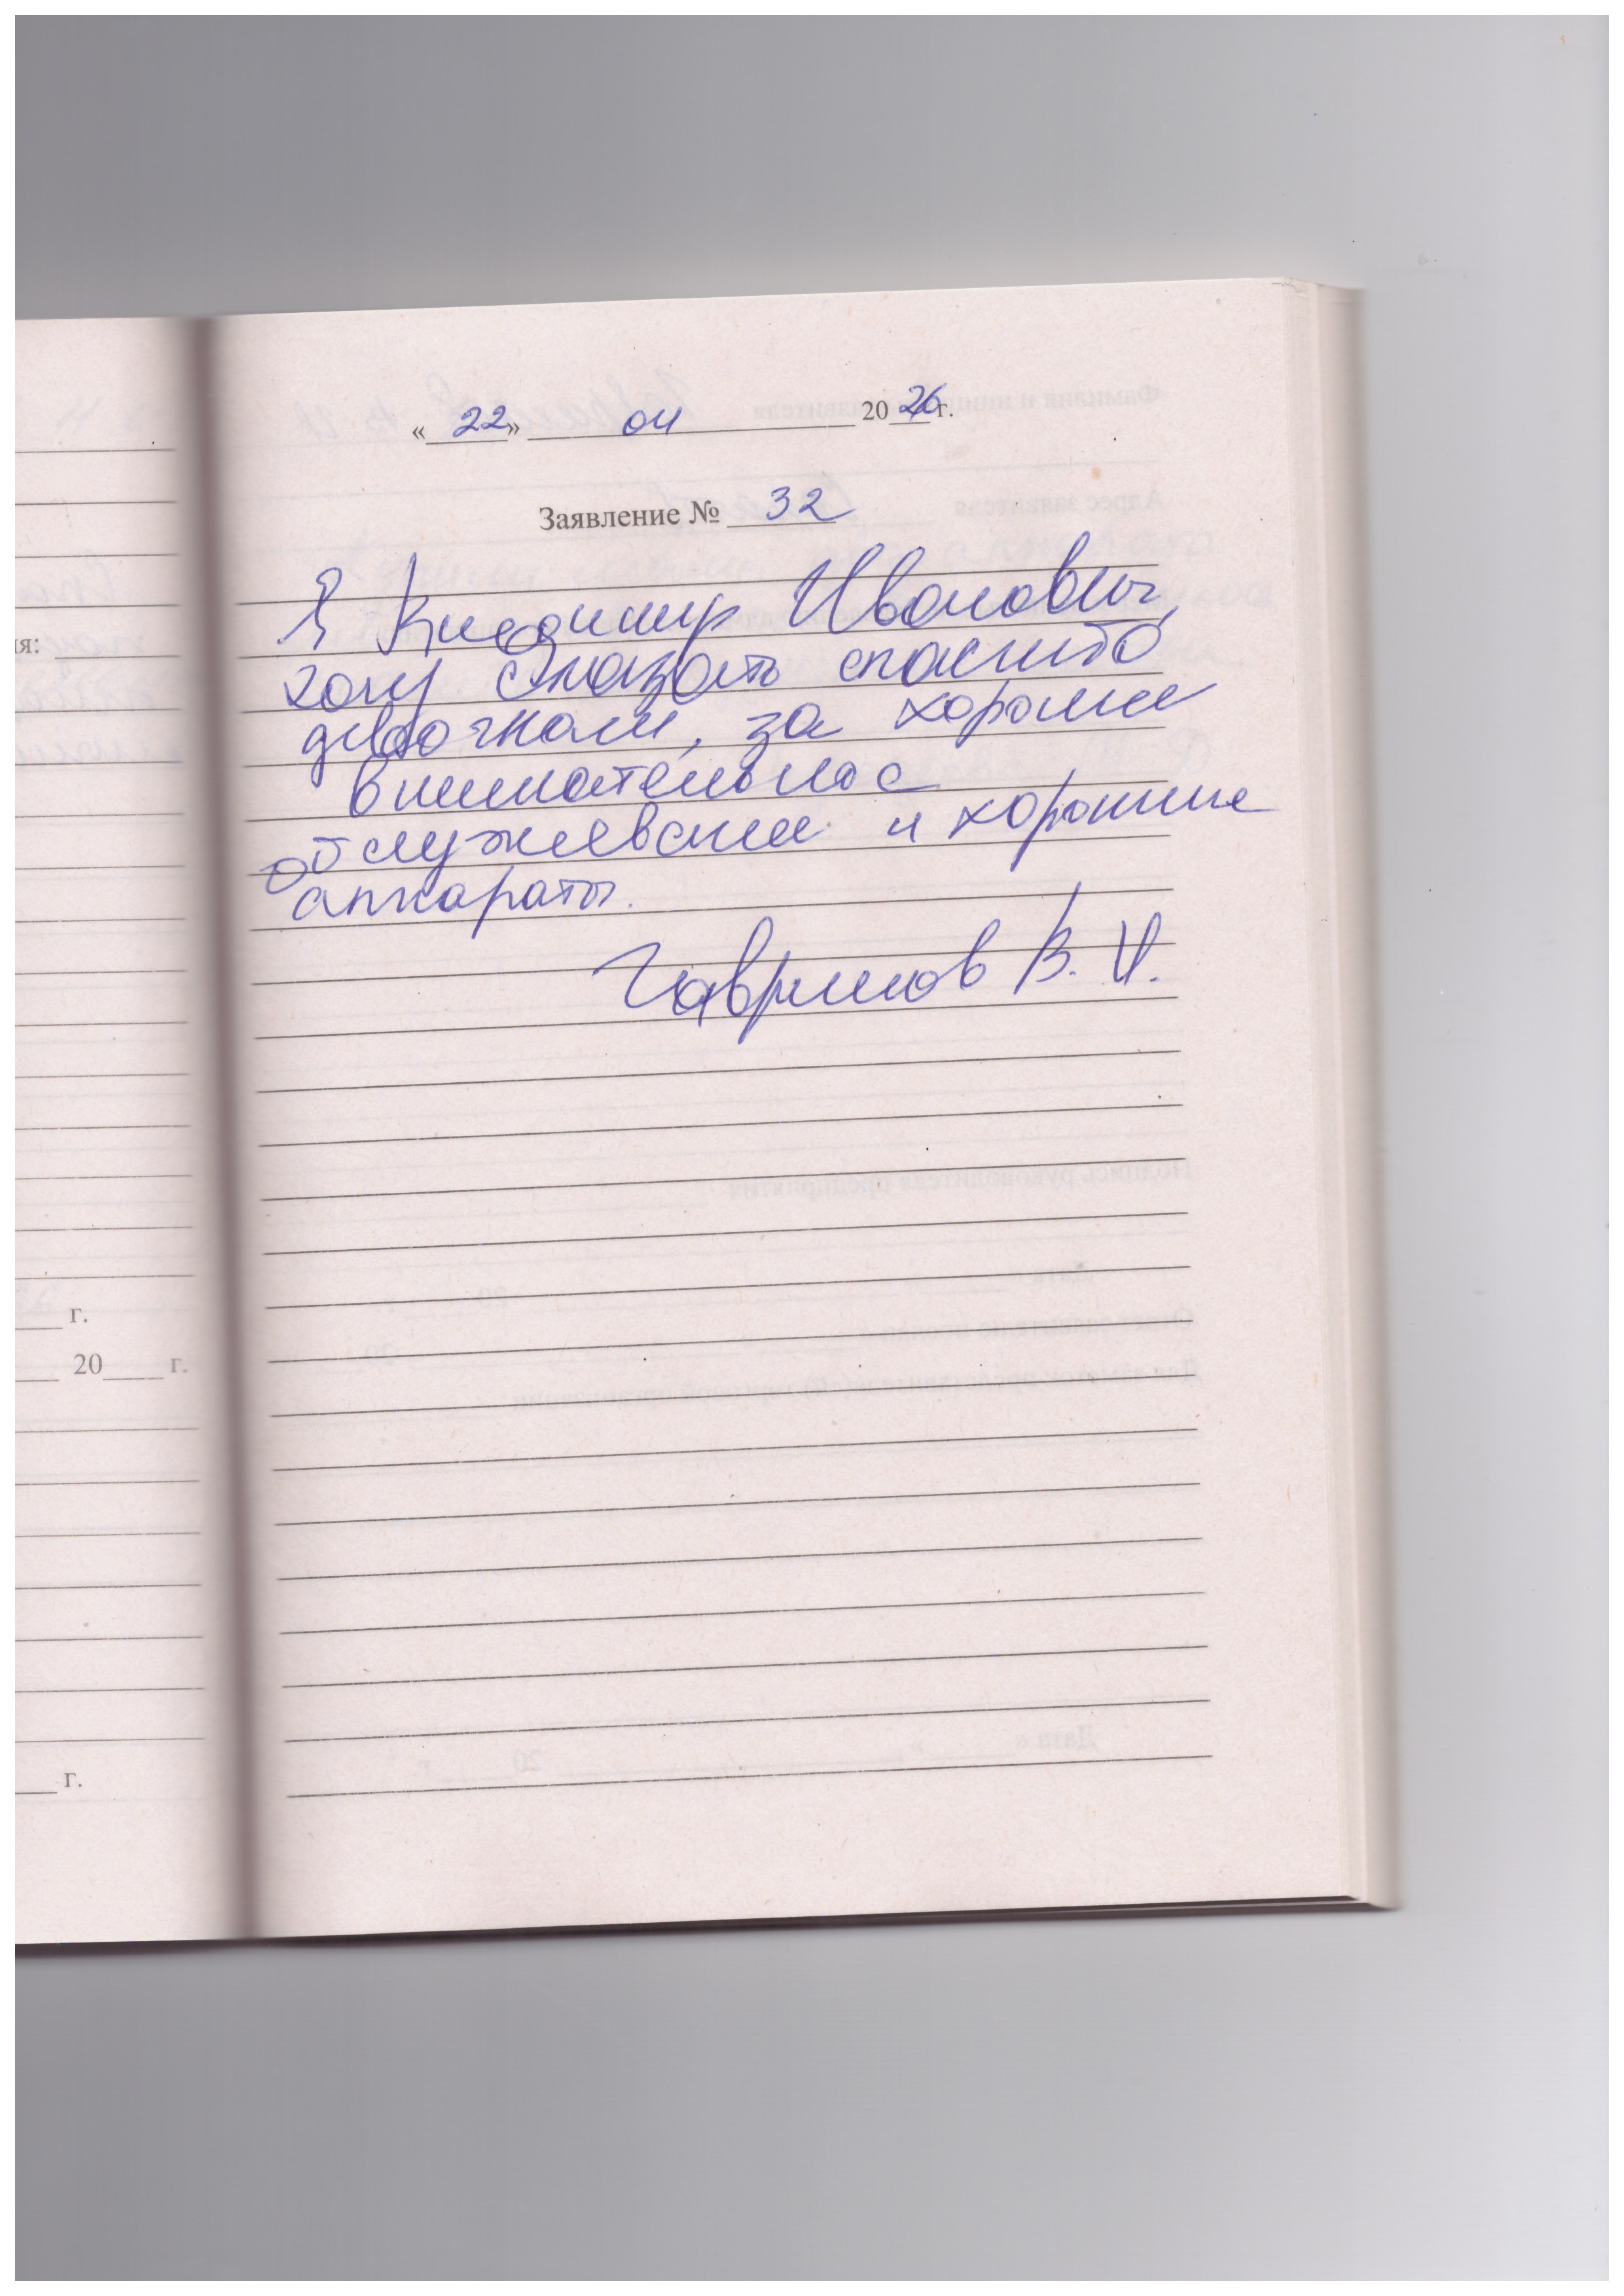 «22» 04 2026 г.
Заявление № 32
Я Владимир Иванович,
хочу сказать спасибо
девочкам, за хорошее
внимательное
обслуживание и хорошие
аппараты.
В. И.
ия:
г.
20 г.
г.